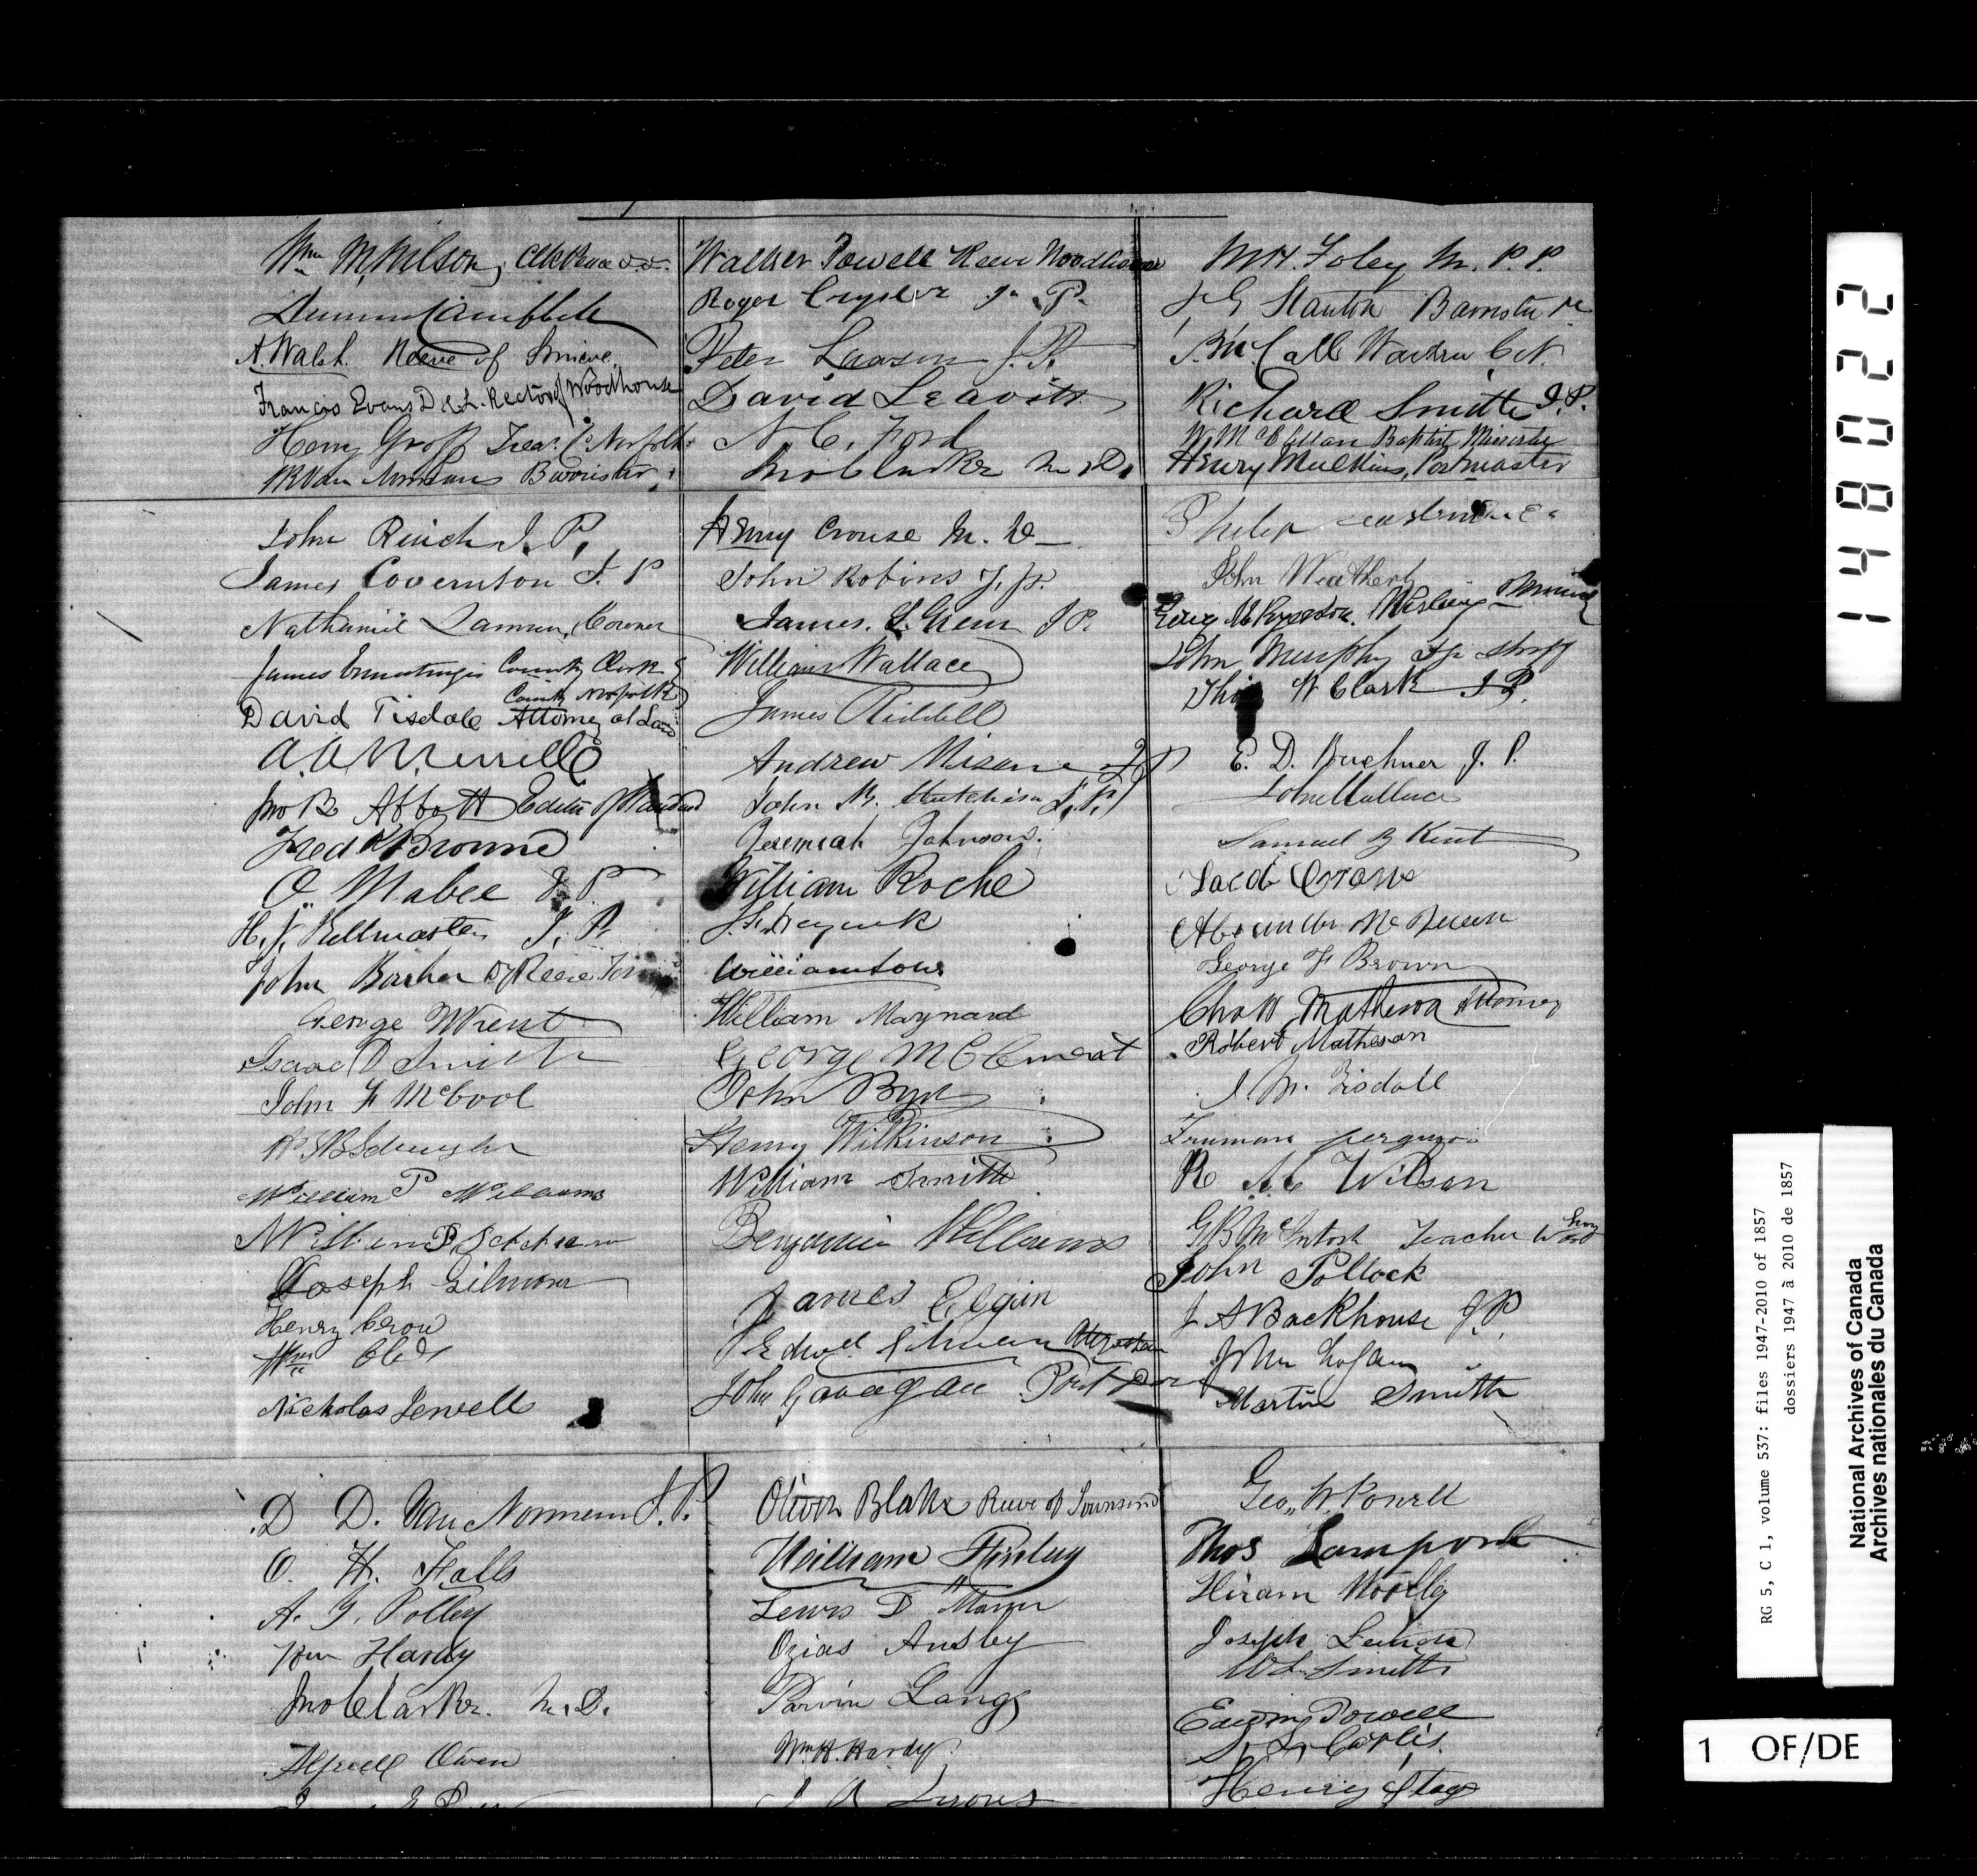 Wm M Wilson, Clk Peace &c.
Duncan Campbell
A. Walsh. Reeve of Simcoe.
Francis Evans D.C.L. Rector of Woodhouse
Henry Groff Trea. Co Norfolk
Barrister
John Rinch J. P.
James Covernton J. P
Nathaniel Coroner
James County Clerk
County Norfolk
David Tisdale Attorney at Law
A. A. Merrill
Jno B Abbott Editor of Standard
Fred K Browne
O Mabee J. P
H. J. Kellmaster J. P.
John Barber Dy Reeve
George Wrent
Isaac D Smith
John F McCool
William P Williams
William B
Joseph Gilmour
Henry Crow
Wm
Nicholas Jewell
D D. Van Norman J. P.
O. H. Falls
A. G. Polley
Wm Hardy
Jno Clarke. M. D.
Alfred Owen
Walker Powell Reeve Woodhouse
Roger Crysler J. P.
Peter Lawson J. P.
David Leavitt
N. C. Ford
Jno Clarke M. D.
Henry Crouse M. D
John Robins J. P.
James. L. Green J P.
William Wallace
James Riddell
Andrew Misener J P
John M. Hutchison J. P.
Jeremiah Johnson.
William Roche
William
William Maynard
George M Clement
John Byrd
Henry Wilkinson
William Smith
Benjamin Williams
James Elgin
Edwd Gilman
John Gavagan Port Dover
Oliver Blake Reeve of Townsend
William Finlay
Lewis D Marr
Ozias Ansley
Parvin Lang
Wm H. Hardy
J A Lyons
M H. Foley M. P. P.
Stanton Barrister
McCall Warden C N.
Richard Smith J. P.
W. McClellan Baptist Minister
Henry Mulkins, Postmaster
Philip
John Weatherby
Ryerson. Wesleyan
John Murphy Dy Shff
Thos W Clark J P.
E. D. Buchner J. P.
John Wallace
Samuel B Kent
Jacob Crans
Alexander McQueen
George F Brown
Chas W Matheson Attorney
Robert Matheson
J. M. Tisdale
Truman ferguson
R A C Wilson
G B McIntosh Teacher
John Pollock
J A Backhouse J. P.
John
Martin Smith
Geo. W. Powell
Thos Lamport
Hiram
Joseph
W L Smith
Edwin Powell
Curtis.
Henry
148022
RG 5, C 1, volume 537: files 1947-2010 of 1857
dossiers 1947 à 2010 de 1857
National Archives of Canada
Archives nationales du Canada
1 OF/DE